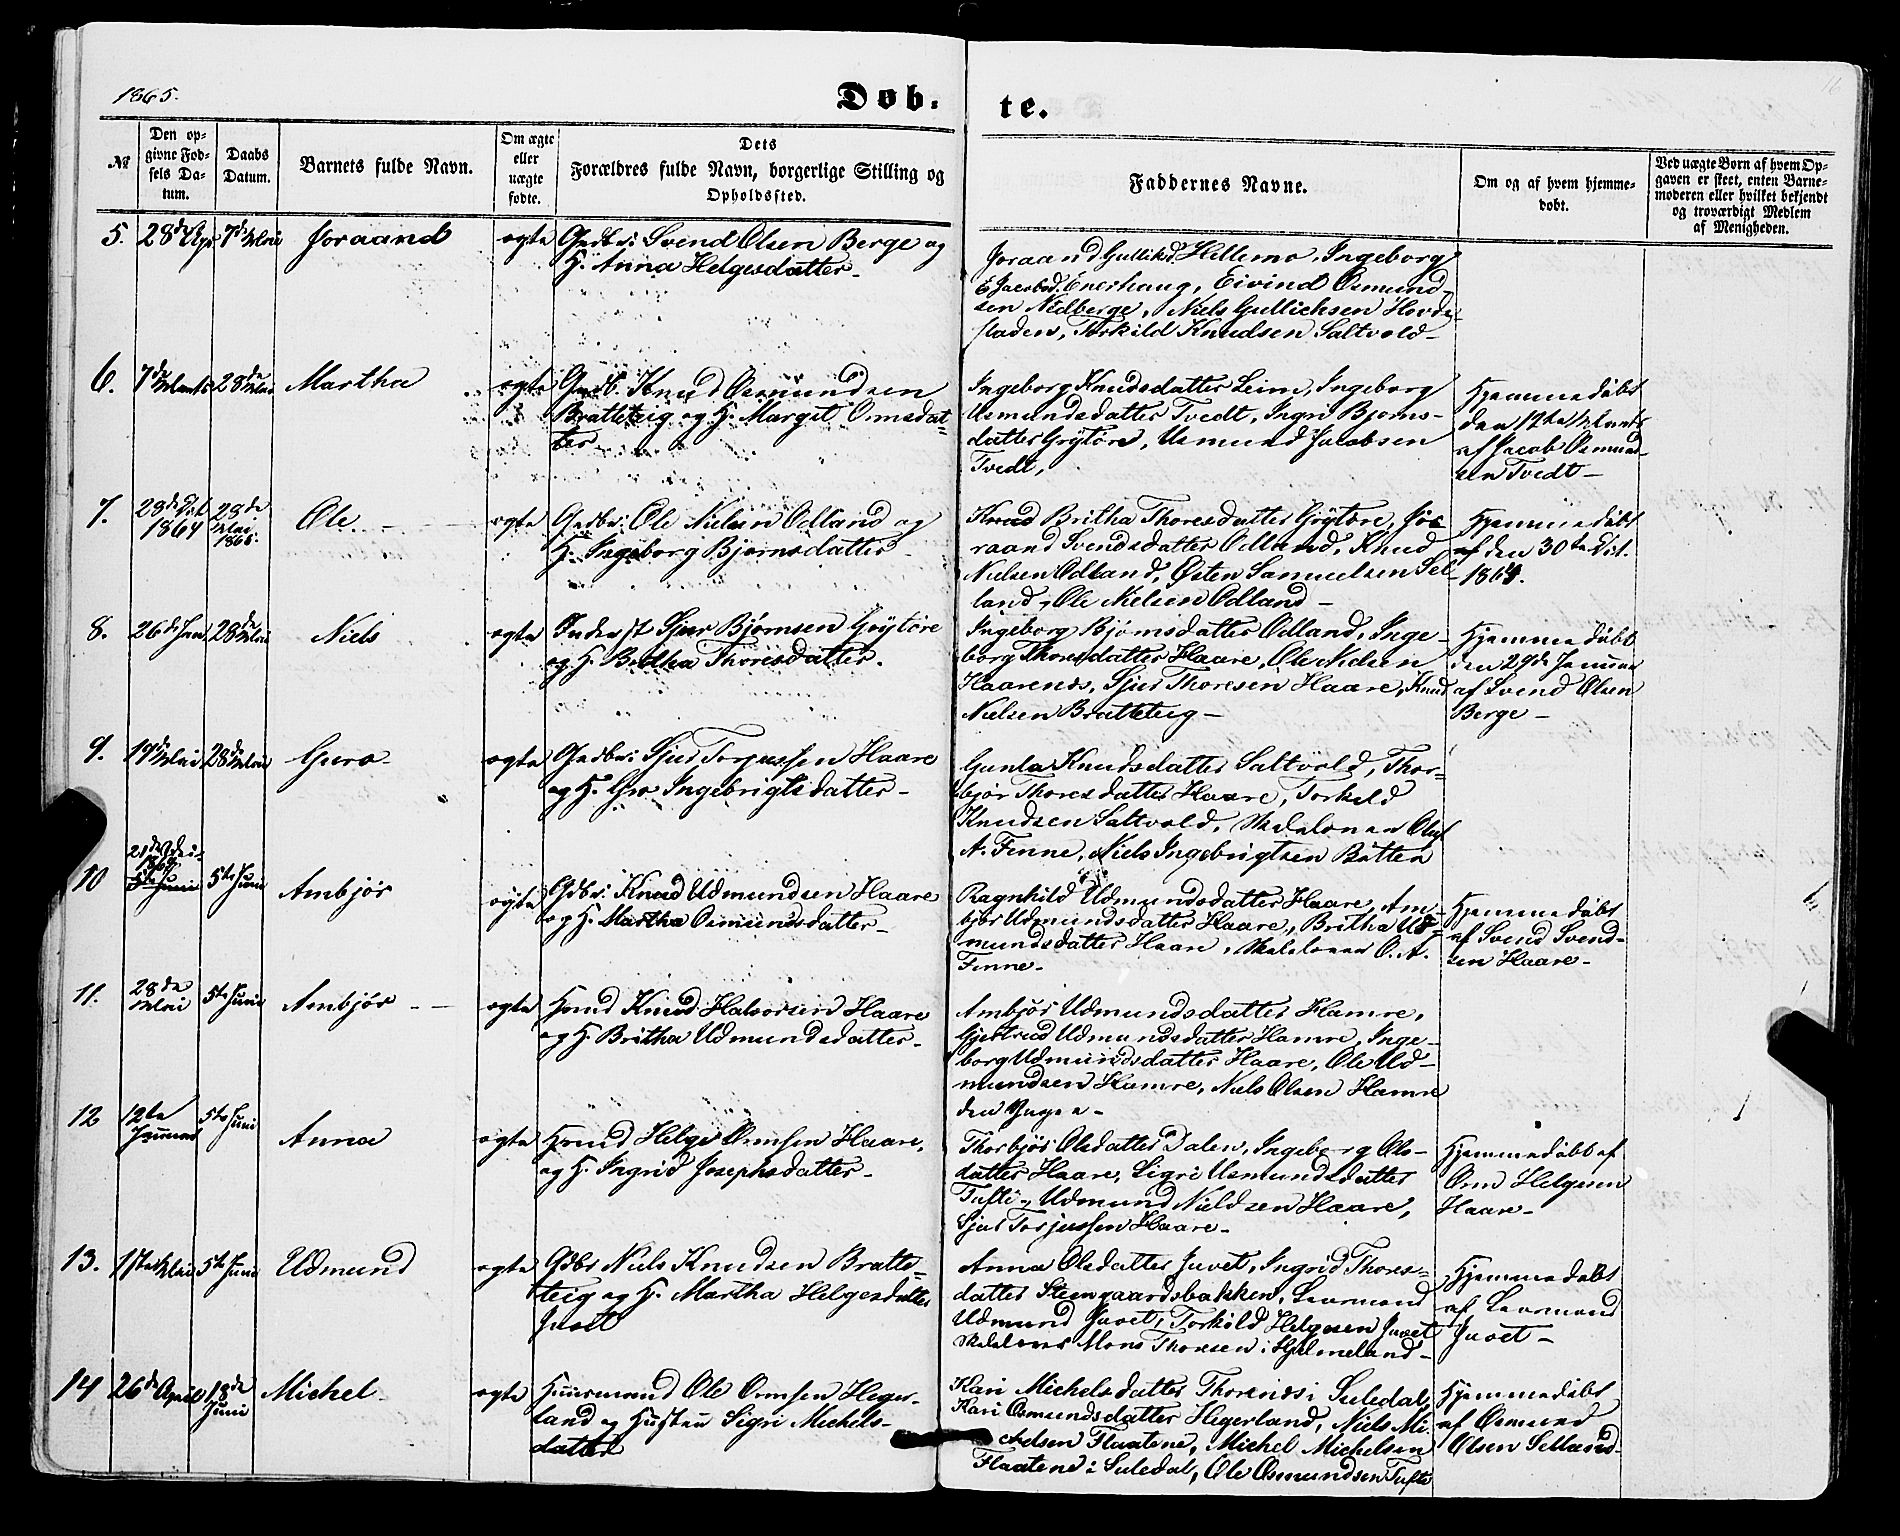 1865.
16
Døb-
te.
№
Den op-
givne Fød-
sels Da-
tum.
Daabs
Datum.
Barnets fulde Navn.
Om ægte
eller
uægte
fødte.
Dets
Forældres fulde Navn, borgerlige Stilling og
Opholdssted.
Faddernes Navne.
Om og af hvem hjemme-
døbt.
Ved uægte Børn af hvem Op-
gaven er skeet, enten Barne-
moderen eller hvilket bekjendt
og troværdigt Medlem
af Menigheden.
5. 28de Apr 7de Mai Joraand ægte Gadbr: Svend Olsen Berge og
H. Anna Helgesdatter-
Joraand Gulliksd. Hellemo, Ingeborg
Jacobsd. Enerhaug, Eivind Osmund-
sen Nedberge, Niels Gullichsen Hovde-
staden, Torkild Knudsen Saltvold-
6. 7de Marts 28de Mai Martha ægte Gadb. Knud Osmundsen
Bratteteig og H. Margit Ormsdat-
ter-
Ingeborg Knudsdatter Leim, Ingeborg
Usmundsdatter Tvedt, Ingri Bjørns-
datter Grytøre, Usmund Jacobsen
Tvedt,
Hjemmedøbt
den 12te Marts
af Jacob Osmund-
sen Tvedt-
7. 28de Oct 1864 28de Mai 1865. Ole ægte Gadbr: Ole Nielsen Odland og
H. Ingeborg Bjørnsdatter-
Knud Britha Thoresdatter Grytøre, Jo-
raand Svendsdatter Odland, Knud
Nielsen Odland, Østen Samuelsen Sel-
land, Ole Nielsen Odland-
Hjemmedøbt
af den 30te Oct.
1864.
8. 26de Jan 28de Mai Niels ægte Inderst Sjur Bjørnsen Grytøre
og H. Britha Thoresdatter.
Ingeborg Bjørnsdatter Odland, Inge-
borg Thoresdatter Haare, Ole Nielsen
Haarenes, Sjur Thoresen Haare, Knud
Nielsen Bratteteig-
Hjemmedøbt
den 29de Januar
af Svend Olsen
Berge-
9. 19de Mai 28de Mai Guro ægte Gadbr: Sjur Torjussen Haare
og H. Gro Ingebrigtsdatter-
Gunla Knudsdatter Saltvold, Thor-
bjør Thoresdatter Haare, Torkild
Knudsen Saltvold, Skolelærer Oluf
A. Finne, Niels Ingebrigtsen Botten
10 5te Juni 5te Juni Ambjør ægte Gdbr: Knud Udmundsen Haare
og H. Martha Osmundsdatter-
Ragnhild Udmundsdatter Haare, Am-
bjør Udmundsdatter Haare, Britha Ud-
mundsdatter Haare, Skolelærer O. A.
Finne-
Hjemmedøbt
af Svend Svend-
sen Haare-
11. 28de Mai 5te Juni Ambjør- ægte Hmd Knud Halvorsen Haare
og H. Britha Udmundsdatter-
Ambjør Udmundsdatter Hamre,
Gjertrud Udmundsdatter Hamre, Inge-
borg Udmundsdatter Haare, Ole Ud-
mundsen Hamre, Niels Olsen Hamre
den Yngre-
12 12te Januar 5te Juni Anna ægte Hmd Helge Ormsen Haare,
og H. Ingrid Josephsdatter-
Thorbjør Olsdatter Dalen, Ingeborg Ols-
datter Haare, Sigri Usmundsdatter
Tufte, Udmund Nielsen Haare,
Sjur Torjussen Haare-
Hjemmedøbt af
Orm Helgesen
Haare-
13. 17te Mai 5te Juni Udmund ægte Gdbr Niels Knudsen Bratte-
teig og H. Martha Helgesdatter
Juvet
Anna Olsdatter Juvet, Ingrid Thores-
datter Steengaardsbakken, Laurmand
Udmund Juvet, Torkild Helgesen Juvet
Skolelærer Mons Thoresen i Hjelmeland-
Hjemmedøbt
af Laurmand
Juvet-
14 26de April 18de Juni Michel ægte Huusmand Ole Ormsen Heger-
land og Hustru Sigri Michels-
datter
Kari Michelsdatter Thorenes i Suledal,
Kari Osmundsdatter Hegerland, Niels Mi-
chelsen Flaatene, Michel Michelsen
Flaatene i Suledal, Ole Osmundsen Tufte
Hjemmedøbt
af Osmund
Olsen Selland-